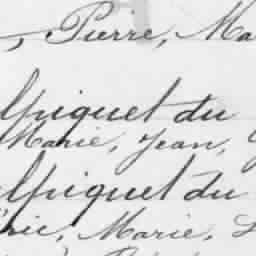 Pierre, Ma
lpiquet du
Marie, Jean,
alpiquet du
rie, Marie, L